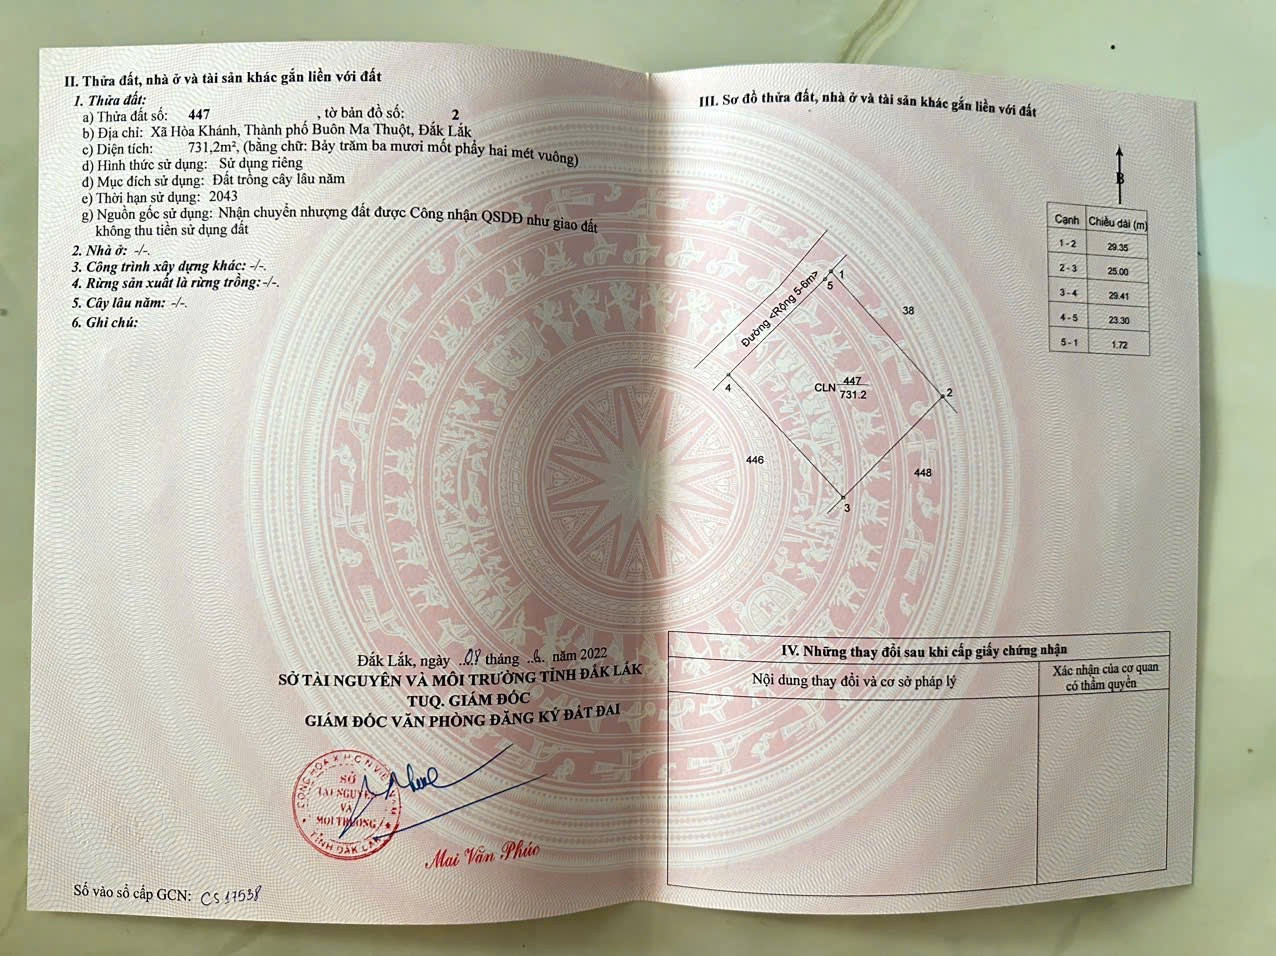 II. Thửa đất, nhà ở và tài sản khác gắn liền với đất
1. Thửa đất:
a) Thửa đất số: 447 , tờ bản đồ số: 2
b) Địa chỉ: Xã Hòa Khánh, Thành phố Buôn Ma Thuột, Đắk Lắk
c) Diện tích: 731,2m², (bằng chữ: Bảy trăm ba mươi mốt phẩy hai mét vuông)
d) Hình thức sử dụng: Sử dụng riêng
đ) Mục đích sử dụng: Đất trồng cây lâu năm
e) Thời hạn sử dụng: 2043
g) Nguồn gốc sử dụng: Nhận chuyển nhượng đất được Công nhận QSDĐ như giao đất
không thu tiền sử dụng đất
2. Nhà ở: -/-.
3. Công trình xây dựng khác: -/-.
4. Rừng sản xuất là rừng trồng: -/-.
5. Cây lâu năm: -/-.
6. Ghi chú:
Đắk Lắk, ngày 08 tháng 6 năm 2022
SỞ TÀI NGUYÊN VÀ MÔI TRƯỜNG TỈNH ĐẮK LẮK
TUQ. GIÁM ĐỐC
GIÁM ĐỐC VĂN PHÒNG ĐĂNG KÝ ĐẤT ĐAI
CỘNG HÒA X.H.C.N VIỆT NAM
SỞ
TÀI NGUYÊN
VÀ
MÔI TRƯỜNG
TỈNH ĐẮK LẮK
Mai Văn Phúc
Số vào sổ cấp GCN: CS 17538
III. Sơ đồ thửa đất, nhà ở và tài sản khác gắn liền với đất
B
Cạnh Chiều dài (m)
1 - 2 29.35
2 - 3 25.00
3 - 4 29.41
4 - 5 23.30
5 - 1 1.72
Đường <Rộng 5-6m>
1
5
38
4
CLN 447
731.2
2
446
448
3
IV. Những thay đổi sau khi cấp giấy chứng nhận
Nội dung thay đổi và cơ sở pháp lý
Xác nhận của cơ quan
có thẩm quyền